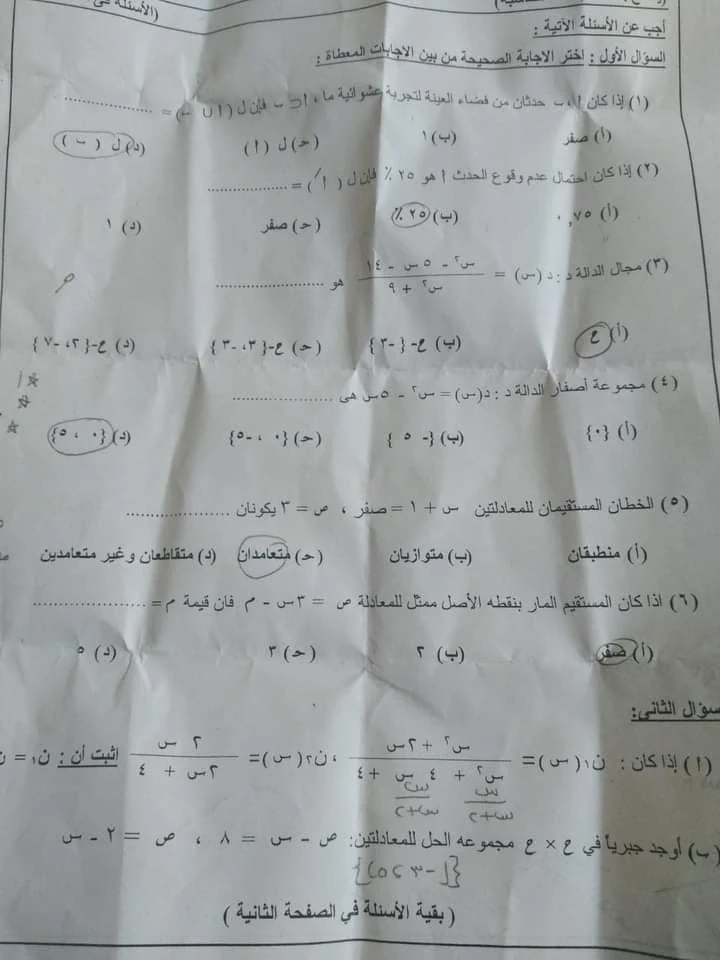 (الأسئلة في
أجب عن الأسئلة الآتية :
السؤال الأول : إختر الاجابة الصحيحة من بين الاجابات المعطاة :
(١) إذا كان أ ، ب حدثان من فضاء العينة لتجربة عشوائية ما ، أ ⊂ ب فإن ل ( أ ∪ ب ) = ..................
(أ) صفر (ب) ١ (حـ) ل ( أ ) (د) ل ( ب )
(٢) إذا كان احتمال عدم وقوع الحدث أ هو ٢٥ ٪ فإن ل ( أ′ ) = ..................
(أ) ٠,٧٥ (ب) ٢٥ ٪ (حـ) صفر (د) ١
(٣) مجال الدالة د : د (س) = (س٢ - ٥ س - ١٤) / (س٢ + ٩) هو ..................
(أ) ع (ب) ع- { -٣ } (حـ) ع- {٣، -٣ } (د) ع- {٢، -٧ }
(٤) مجموعة أصفار الدالة د : د(س) = س٢ - ٥س هى ..................
(أ) {٠} (ب) {- ٥ } (حـ) {٠ ، -٥} (د) {٠ ، ٥}
(٥) الخطان المستقيمان للمعادلتين س + ١ = صفر ، ص = ٣ يكونان ..................
(أ) منطبقان (ب) متوازيان (حـ) متعامدان (د) متقاطعان وغير متعامدين
(٦) اذا كان المستقيم المار بنقطه الأصل ممثل للمعادلة ص = ٣س - م فان قيمة م = ..................
(أ) صفر (ب) ٢ (حـ) ٣ (د) ٥
سؤال الثانى:
( أ ) إذا كان : ن١(س) = (س٢ + ٢س) / (س٢ + ٤ س + ٤) ، ن٢(س) = (٢ س) / (٢س + ٤) اثبت أن : ن١ = ن
س / س+٢ س / س+٢
(ب) أوجد جبرياً في ع × ع مجموعه الحل للمعادلتين: ص - س = ٨ ، ص = ٢ - س
{(-٣ ، ٥)}
( بقية الأسئلة في الصفحة الثانية )